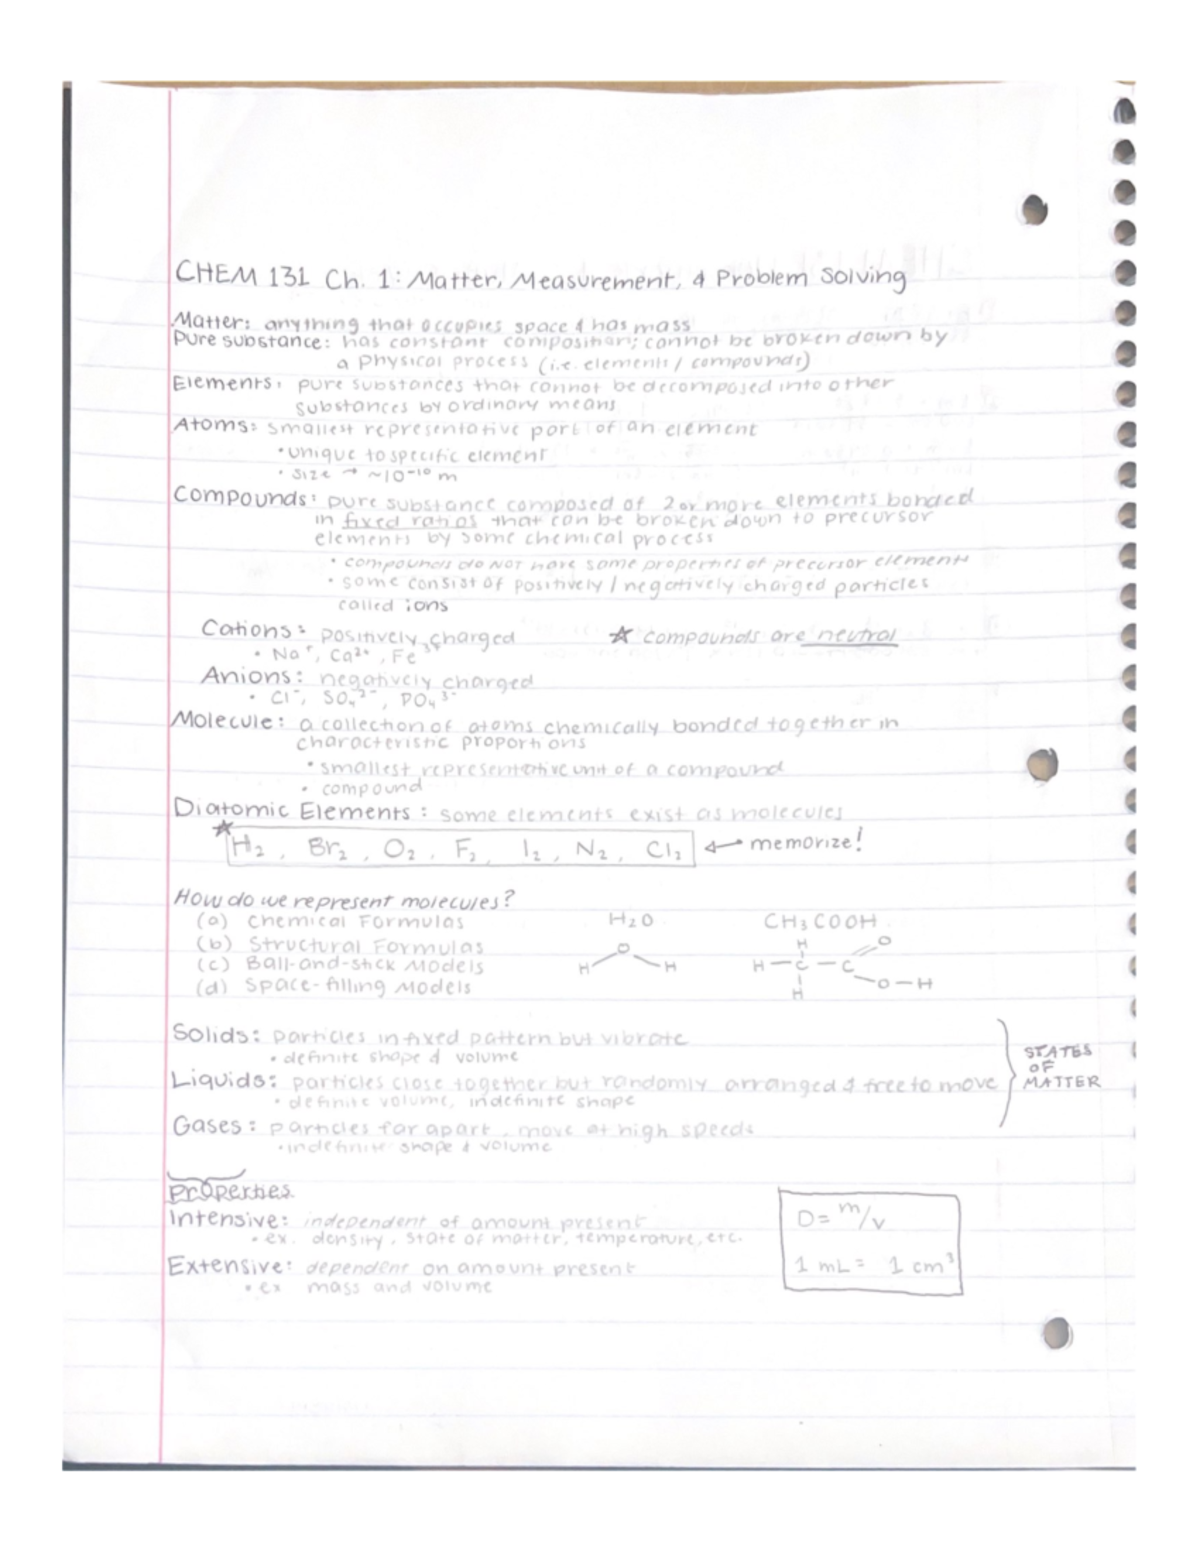 CHEM 131 Ch. 1: Matter, Measurement, & Problem Solving
Matter: anything that occupies space & has mass
Pure substance: has constant composition; cannot be broken down by
a physical process (i.e. elements / compounds)
Elements: pure substances that cannot be decomposed into other
substances by ordinary means
Atoms: smallest representative part of an element
• unique to specific element
• size → ~10⁻¹⁰ m
Compounds: pure substance composed of 2 or more elements bonded
in fixed ratios that can be broken down to precursor
elements by some chemical process
• compounds do NOT have same properties of precursor elements
• some consist of positively / negatively charged particles
called ions
Cations: positively charged ★ compounds are neutral
• Na⁺, Ca²⁺, Fe³⁺
Anions: negatively charged
• Cl⁻, SO₄²⁻, PO₄³⁻
Molecule: a collection of atoms chemically bonded together in
characteristic proportions
• smallest representative unit of a compound
• compound
Diatomic Elements: some elements exist as molecules
★ H₂, Br₂, O₂, F₂, I₂, N₂, Cl₂ ← memorize!
How do we represent molecules?
(a) Chemical Formulas H₂O CH₃COOH
(b) Structural Formulas
(c) Ball-and-stick Models
(d) Space-filling Models
O
H H
H O
H — C — C
H O — H
Solids: particles in fixed pattern but vibrate
• definite shape & volume
Liquids: particles close together but randomly arranged & free to move
• definite volume, indefinite shape
Gases: particles far apart, move at high speeds
• indefinite shape & volume
STATES
OF
MATTER
Properties
Intensive: independent of amount present
• ex. density, state of matter, temperature, etc.
Extensive: dependent on amount present
• ex mass and volume
D = m/v
1 mL = 1 cm³